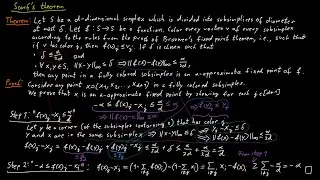 Scarf's theorem
Theorem: Let S be a d-dimensional simplex which is divided into subsimplices of diameter
at most δ. Let f: S→S be a function. Color every vertex of every subsimplex
according to the rules from the proof of Brouwer's fixed point theorem, i.e., such that
if v has color j, then f(v)ⱼ ≤ vⱼ. If δ is chosen such that
• δ ≤ α/2d and
• ∀ x,y ∈ S, ‖x-y‖∞ ≤ δ ⇒ ‖f(x)-f(y)‖∞ ≤ α/2d,
then any point in a fully colored subsimplex is an α-approximate fixed point of f.
Proof: Consider any point x=(x₁, x₂, ...) in a fully colored subsimplex.
We prove that x is an α-approximate fixed point by showing for each j
Step 1: f(x)ⱼ - xⱼ ≤ α/d
Let y be a corner (of the subsimplex containing x) that has color j.
y and x are in the same subsimplex
Step 2: -α ≤ f(x)ⱼ - xⱼ
From step 1